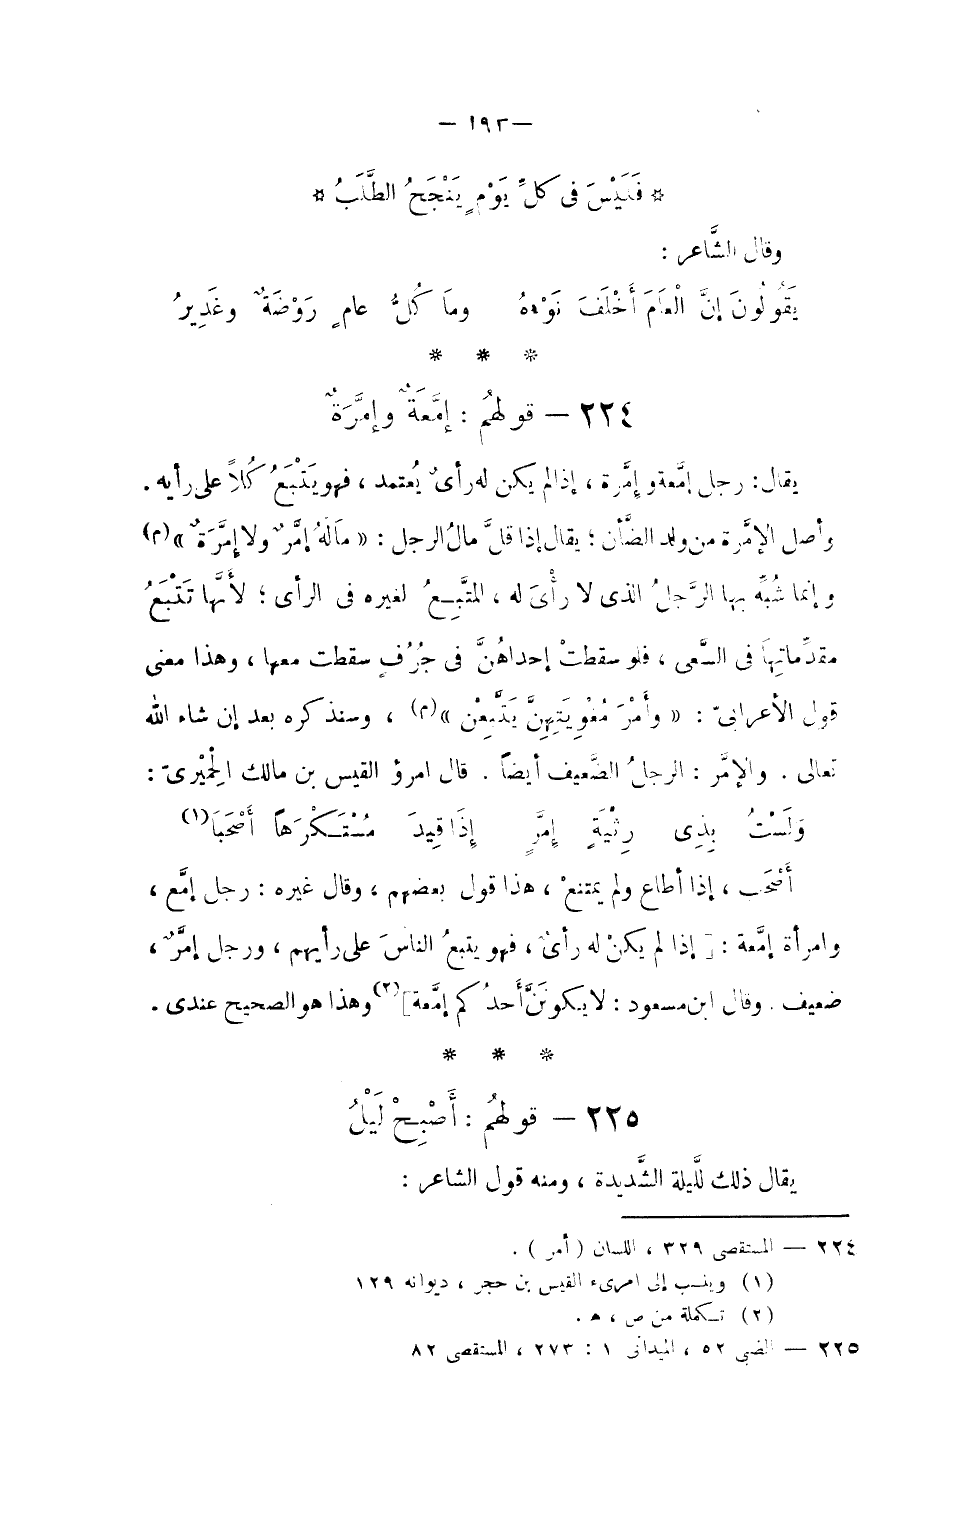 — ١٩٣ —
* فَلَيْسَ فى كلِّ يَوْمٍ يَنْجَحُ الطَّلَبُ *
وقال الشَّاعر :
يَقُولُونَ إنَّ الْعَامَ أَخْلَفَ نَوْءهُ وما كُلُّ عامٍ رَوْضَةٌ وغَدِيرُ
* * *
٢٢٤ — قولهُم : إمَّعَةٌ وإمَّرَةٌ
يقال : رجل إمَّعة وإمَّرة ، إذا لم يكن له رأىٌ يُعتمد ، فهو يَتْبَعُ كُلاًّ على رأيه .
وأصل الإمَّرة من ولد الضَّأن ؛ يقال إذا قلَّ مالُ الرجل : « مالَهُ إمَّرٌ ولا إمَّرَةٌ »(م)
وإنما شُبِّه بها الرَّجلُ الذى لا رأْىَ له ، المتَّبِعُ لغيره فى الرأى ؛ لأنَّها تَتْبَعُ
مقدِّماتِها فى السَّعى ، فلو سقطتْ إحداهُنَّ فى جُرُفٍ سقطت معها ، وهذا معنى
قول الأعرابىّ : « وأَمْرَ مُغْوِيَتِهِنَّ يَتَّبِعْن »(م) ، وسنذكره بعد إن شاء الله
تعالى . والإمَّر : الرجلُ الضَّعيف أيضاً . قال امرؤ القيس بن مالك الحِمْيرىّ :
وَلَسْتُ بِذِى رِثْيَةٍ إمَّرٍ إِذَا قِيدَ مُسْتَكْرَهاً أَصْحَبَا(١)
أَصْحَب ، إذا أطاع ولم يمتنعْ ، هذا قول بعضهم ، وقال غيره : رجل إمَّع ،
وامرأة إمَّعة : [ إذا لم يكنْ له رأىٌ ، فهو يتبعُ الناسَ على رأيهم ، ورجل إمَّرٌ ،
ضعيف . وقال ابن مسعود : لا يكونَنَّ أحدُكم إمَّعة](٢) وهذا هو الصحيح عندى .
* * *
٢٢٥ — قولهُم : أَصْبِحْ لَيْلُ
يقال ذلك للَّيلة الشَّديدة ، ومنه قول الشاعر :
٢٢٤ — المستقصى ٣٢٩ ، اللسان ( أمر ) .
(١) وينسب إلى امرىء القيس بن حجر ، ديوانه ١٢٩
(٢) تكملة من ص ، هـ .
٢٢٥ — الضبى ٥٢ ، الميدانى ١ : ٢٧٣ ، المستقصى ٨٢